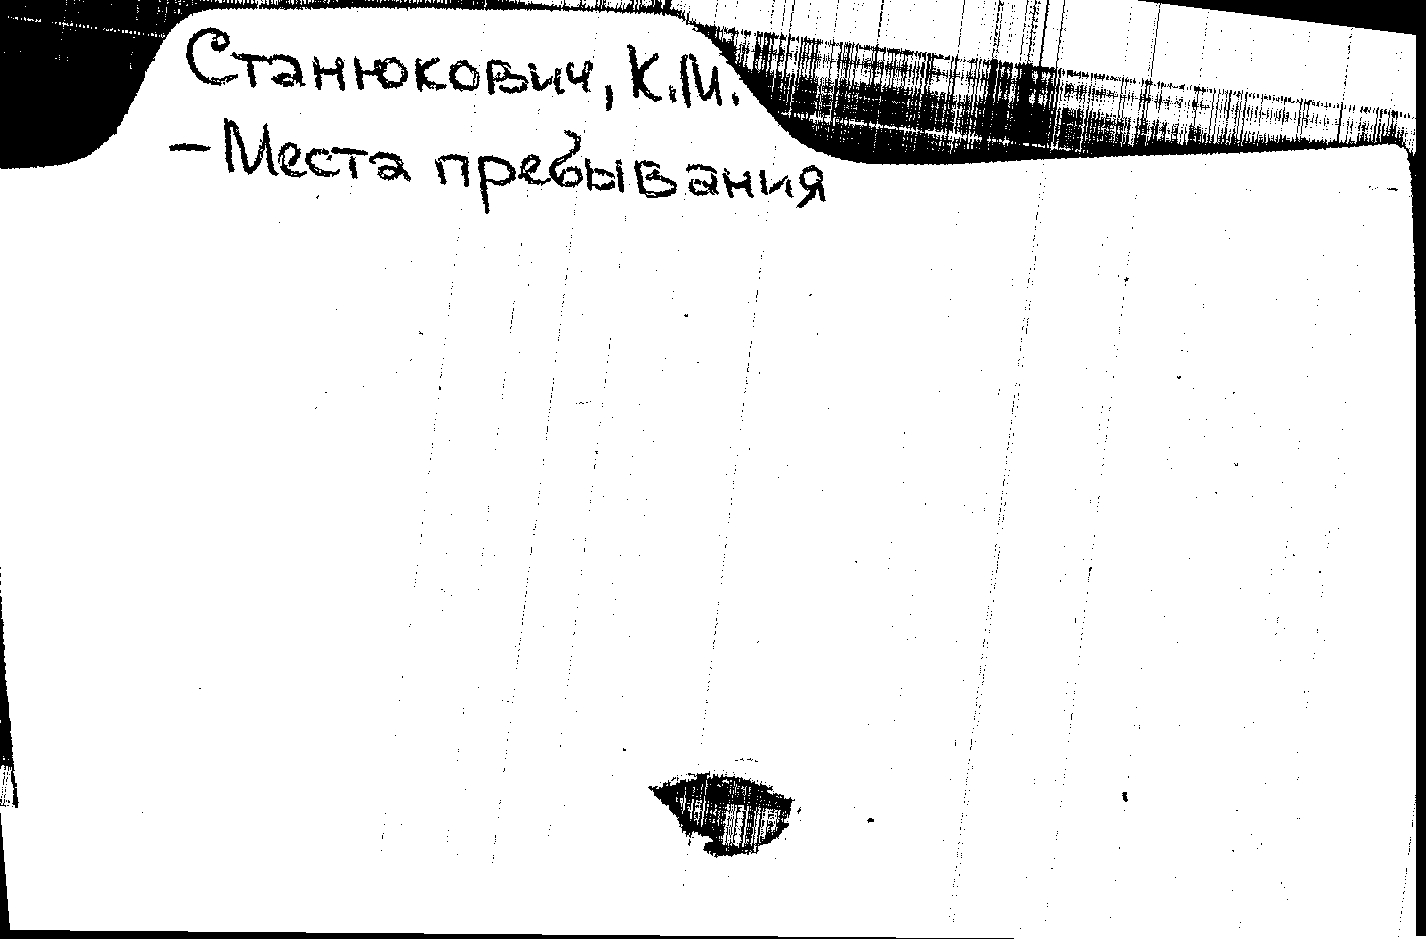 Станюкович, К.М.
– Места пребывания